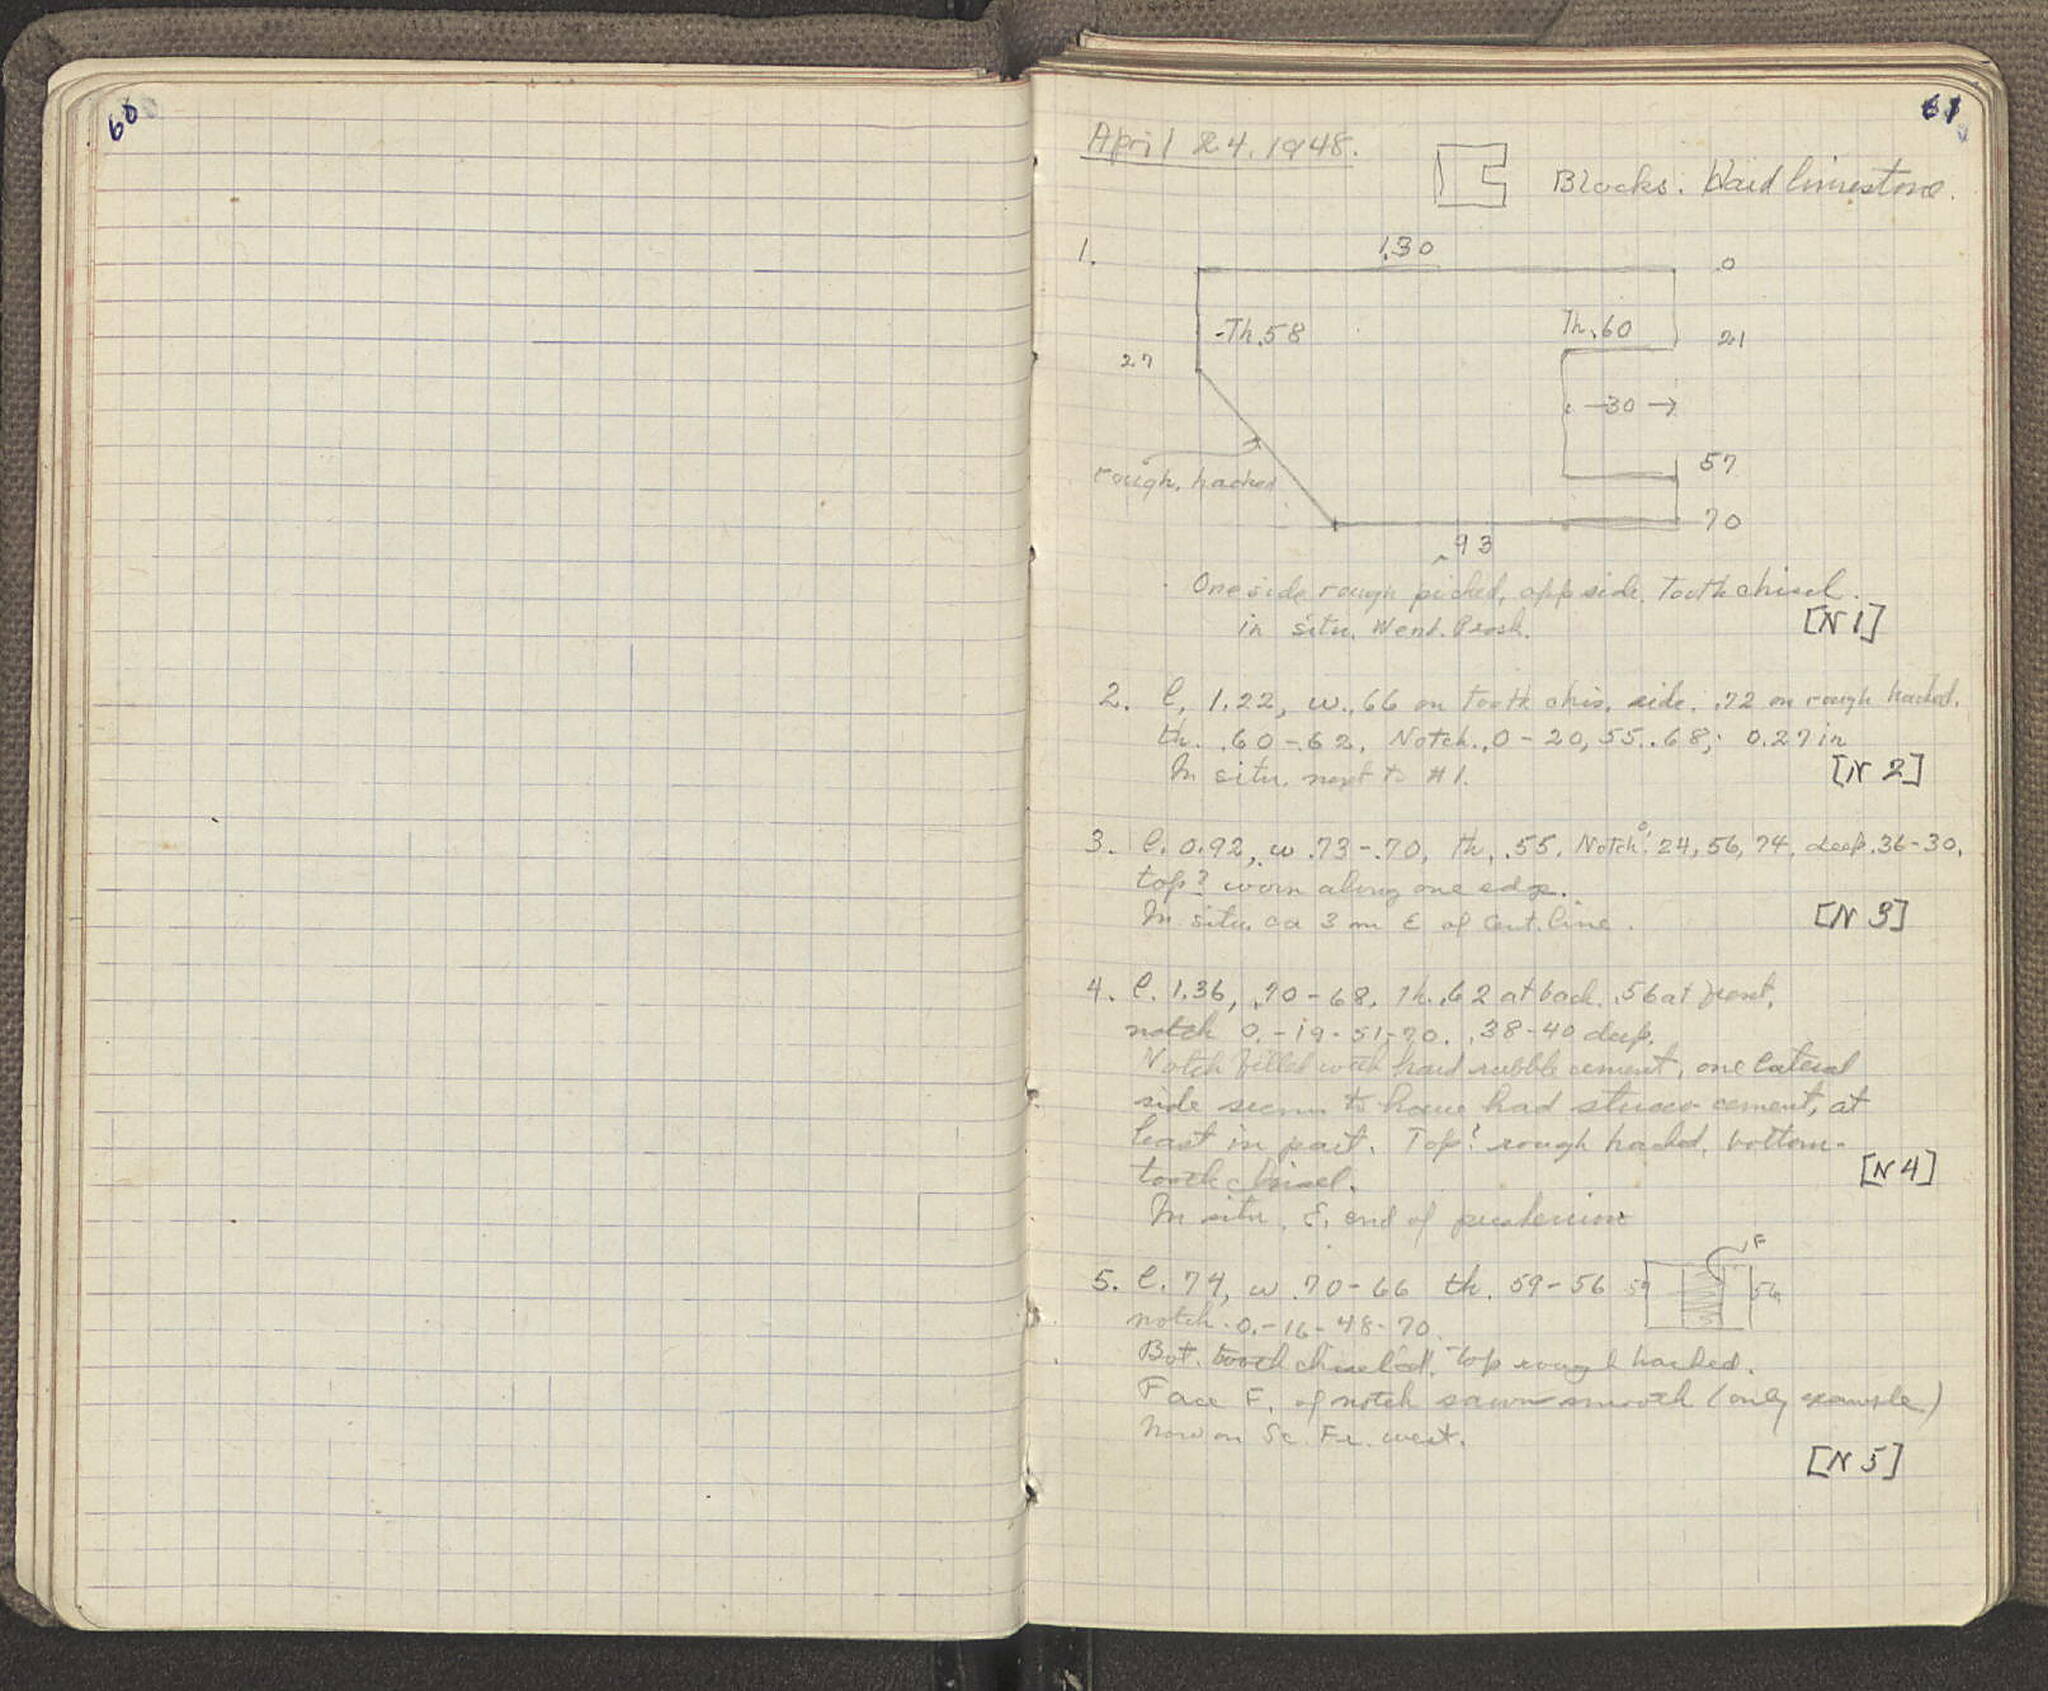 60
61
April 24. 1948.
Blocks. Hard limestone.
1.
1.30
.0
-Th .58
Th .60
21
27
30
57
rough. hacked
70
.93
One side rough picked, opp side. Tooth chisel.
in situ. West. Prosk.
[N 1]
2. l. 1.22, w. .66 on tooth chis. side. .72 on rough hacked.
th. .60-.62. Notch. .0-20, 55. .68; 0.27 in
In situ. next to #1.
[N 2]
3. l. 0.92, w .73-.70, Th. .55. Notch 0, 24, 56, 74. deep .36-30.
top? worn along one edge.
In situ. ca 3 m E of Cent. line.
[N 3]
4. l. 1.36, .70-68. Th. .62 at back. .56 at front.
notch 0.-19-51-70. .38-40 deep.
Notch filled with hard rubble cement, one lateral
side seems to have had stucco cement, at
least in part. Top? rough hacked, bottom-
tooth chisel.
[N 4]
In situ, E. end of proskenion
F
5. l. 74, w .70-66 th. 59-56
59
56
notch .0.-16-48-70.
Bot. tooth chiseled. Top rough hacked.
Face F. of notch sawn smooth (only example)
Now on Sc. Fr. west.
[N 5]